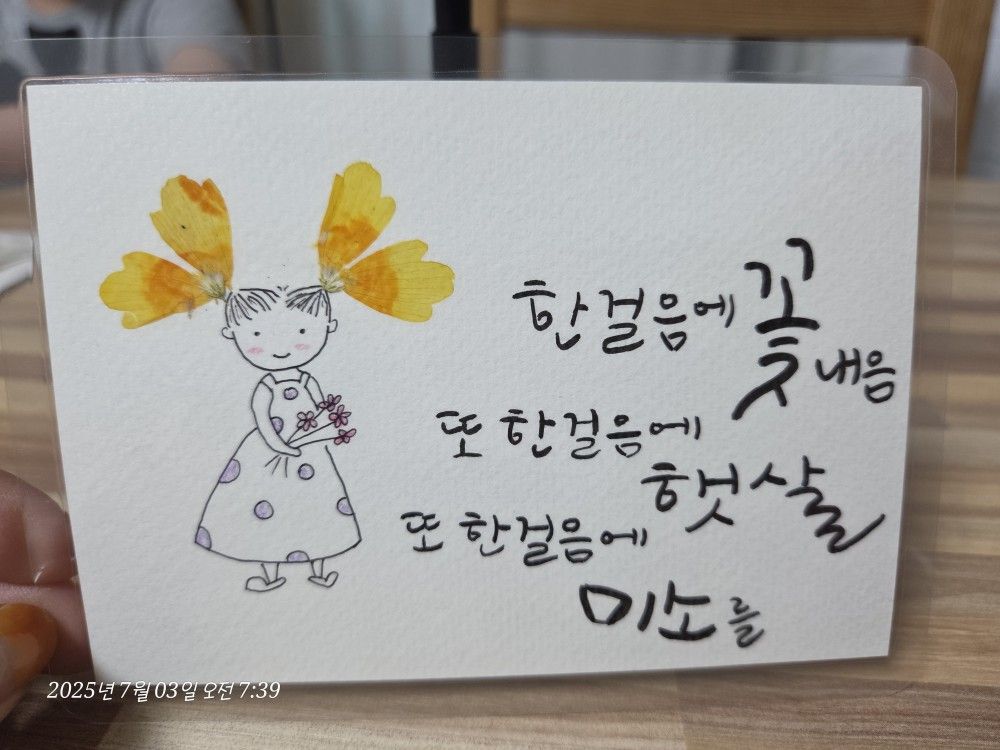 한걸음에 꽃내음
또 한걸음에
햇살
또 한걸음에
미소를
2025년 7월 03일 오전 7:39